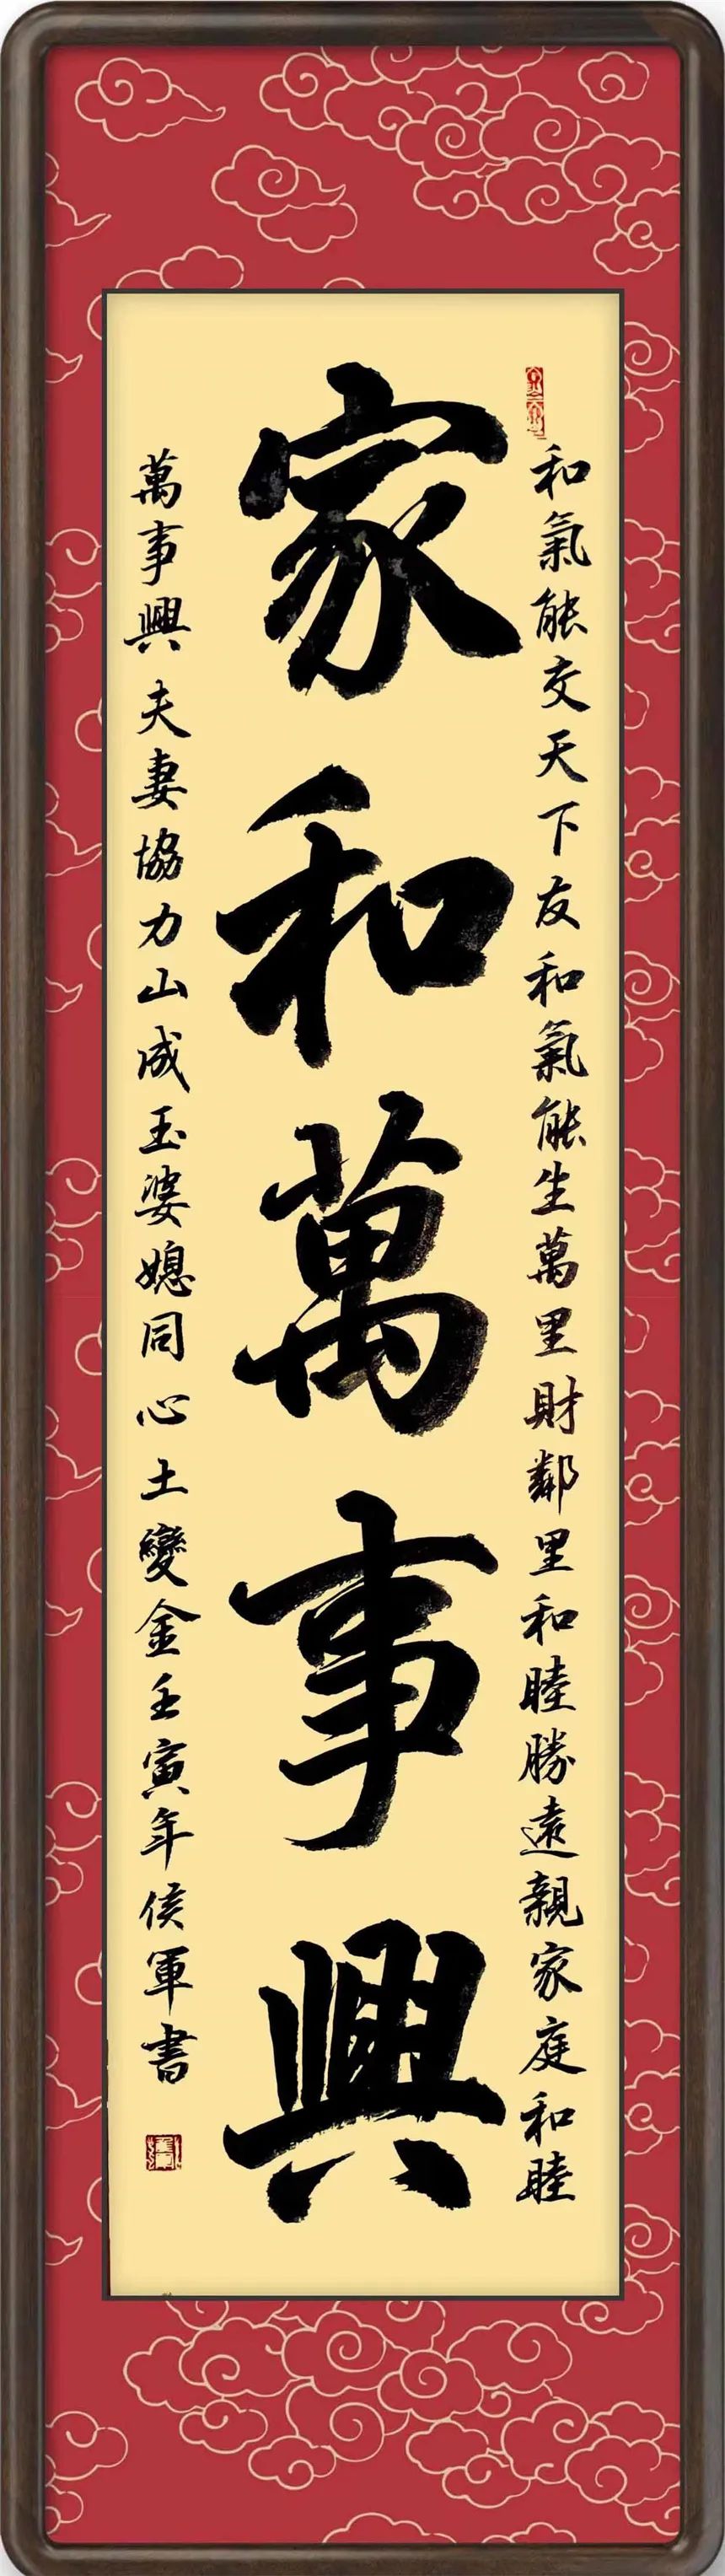 和氣能交天下友和氣能生萬里財鄰里和睦勝遠親家庭和睦
家和萬事興
萬事興夫妻協力山成玉婆媳同心土變金壬寅年侯軍書